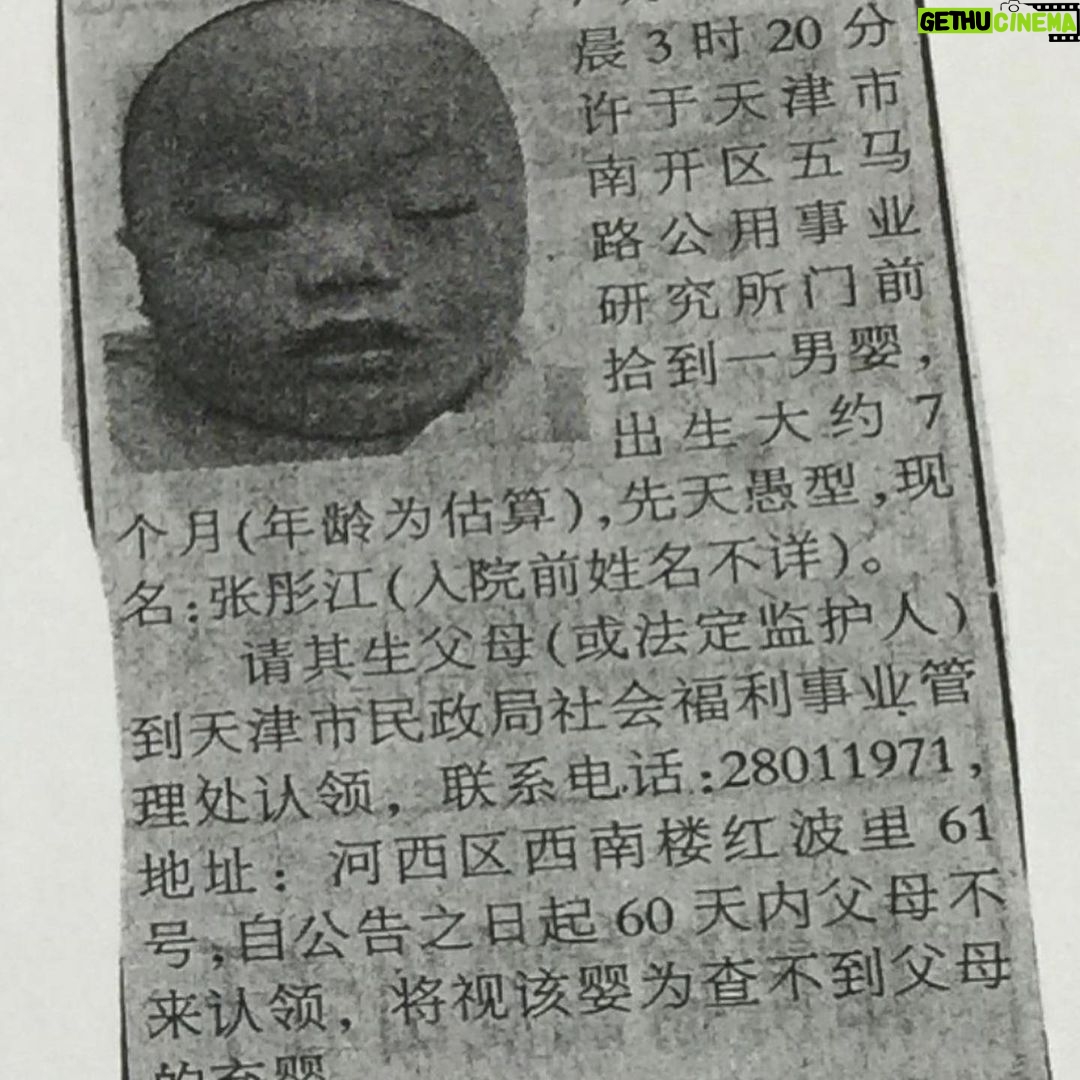 GETHUCINEMA
晨3时20分
许于天津市
南开区五马
路公用事业
研究所门前
拾到一男婴,
出生大约7
个月(年龄为估算),先天愚型,现
名:张彤江(入院前姓名不详)。
请其生父母(或法定监护人)
到天津市民政局社会福利事业管
理处认领,联系电话:28011971,
地址:河西区西南楼红波里61
号,自公告之日起60天内父母不
来认领,将视该婴为查不到父母
的弃婴